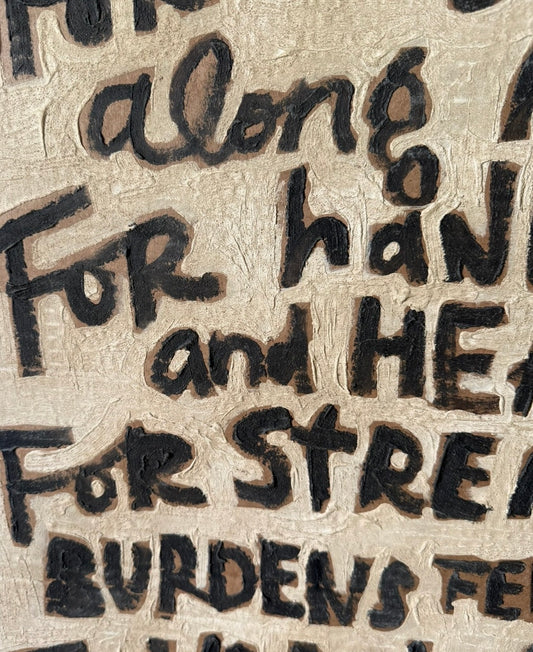 along
FOR hAN
and HEA
FOR STREA
BURDENS FE